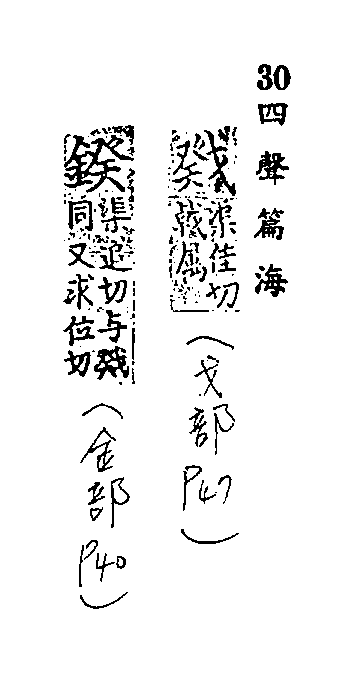 30四聲篇海
戣渠佳切戟属
（戈部P47）
鍨渠追切与戣同又求位切
（金部P40）